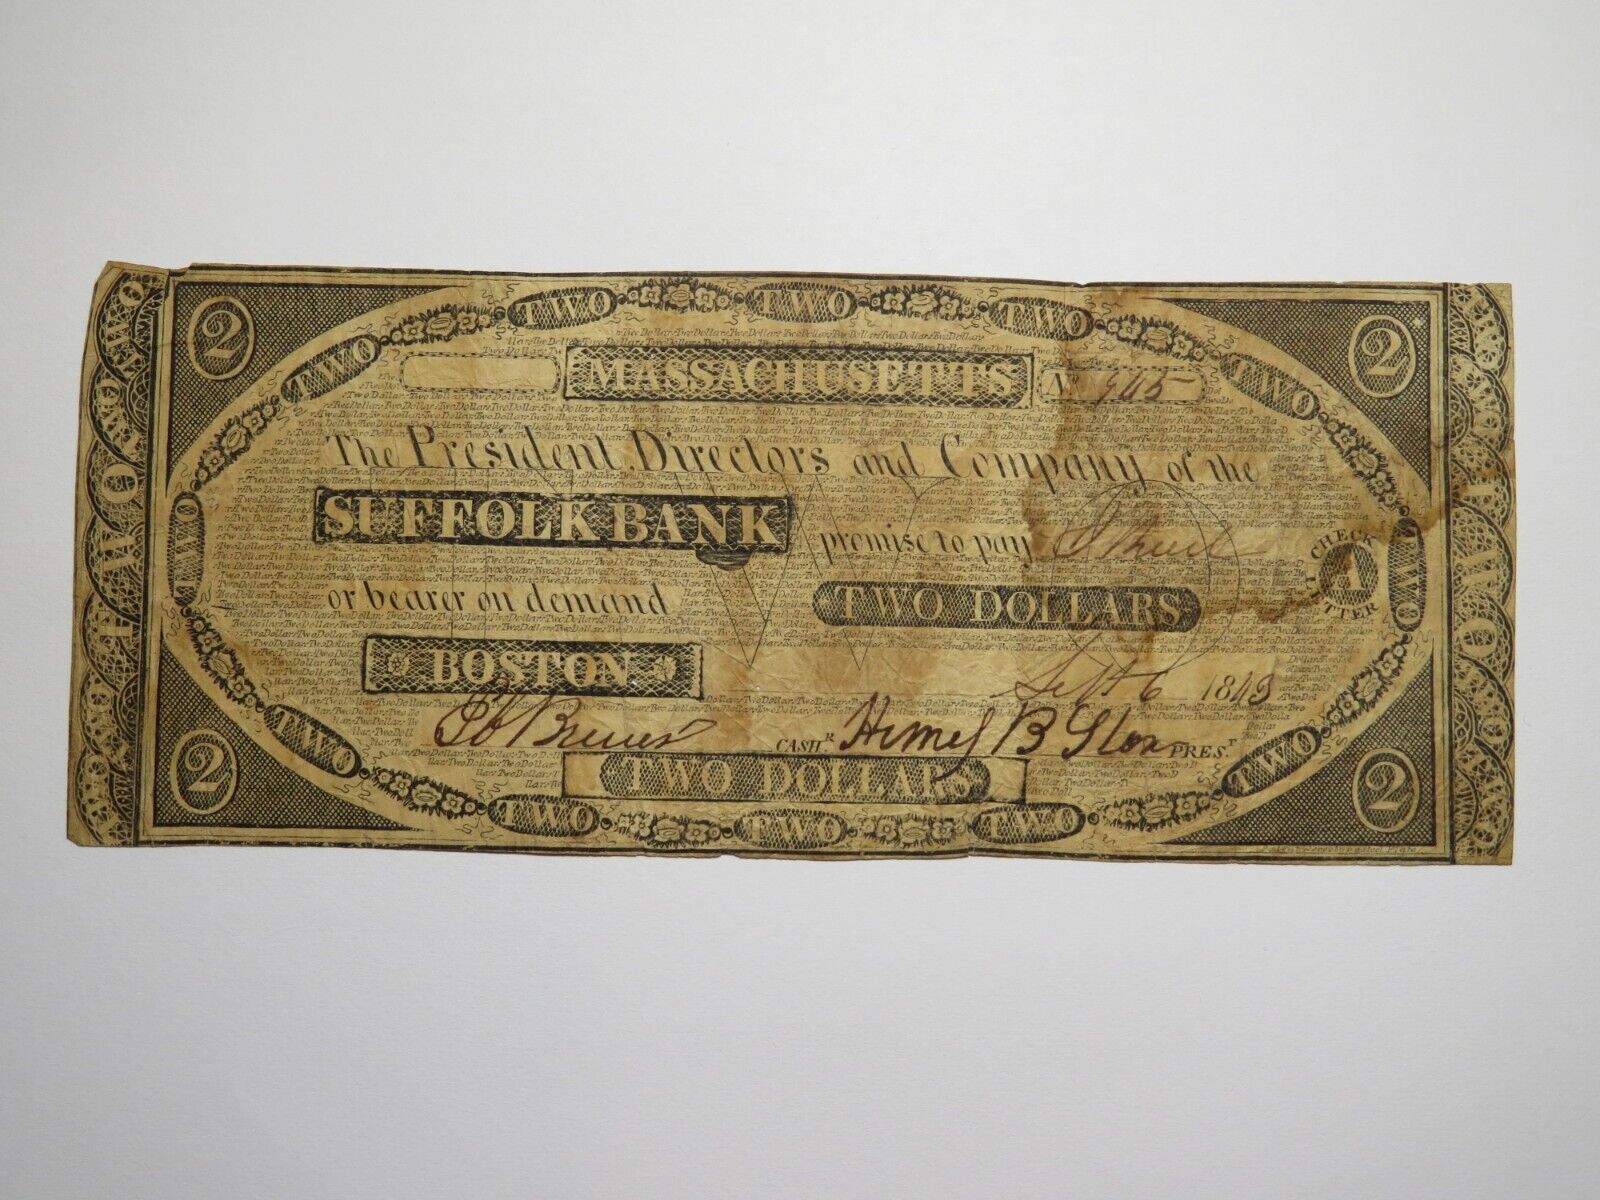 TWO TWO TWO
2 2
TWO TWO
MASSACHUSETTS No 945
The President Directors and Company of the
SUFFOLK BANK promise to pay
or bearer on demand TWO DOLLARS
CHECK A LETTER
TWO TWO
BOSTON Sept 6 184
Brewer CASH.R Henry B Stone PRES.T
TWO DOLLARS
TWO TWO
2 2
TWO TWO TWO
TWO
TWO